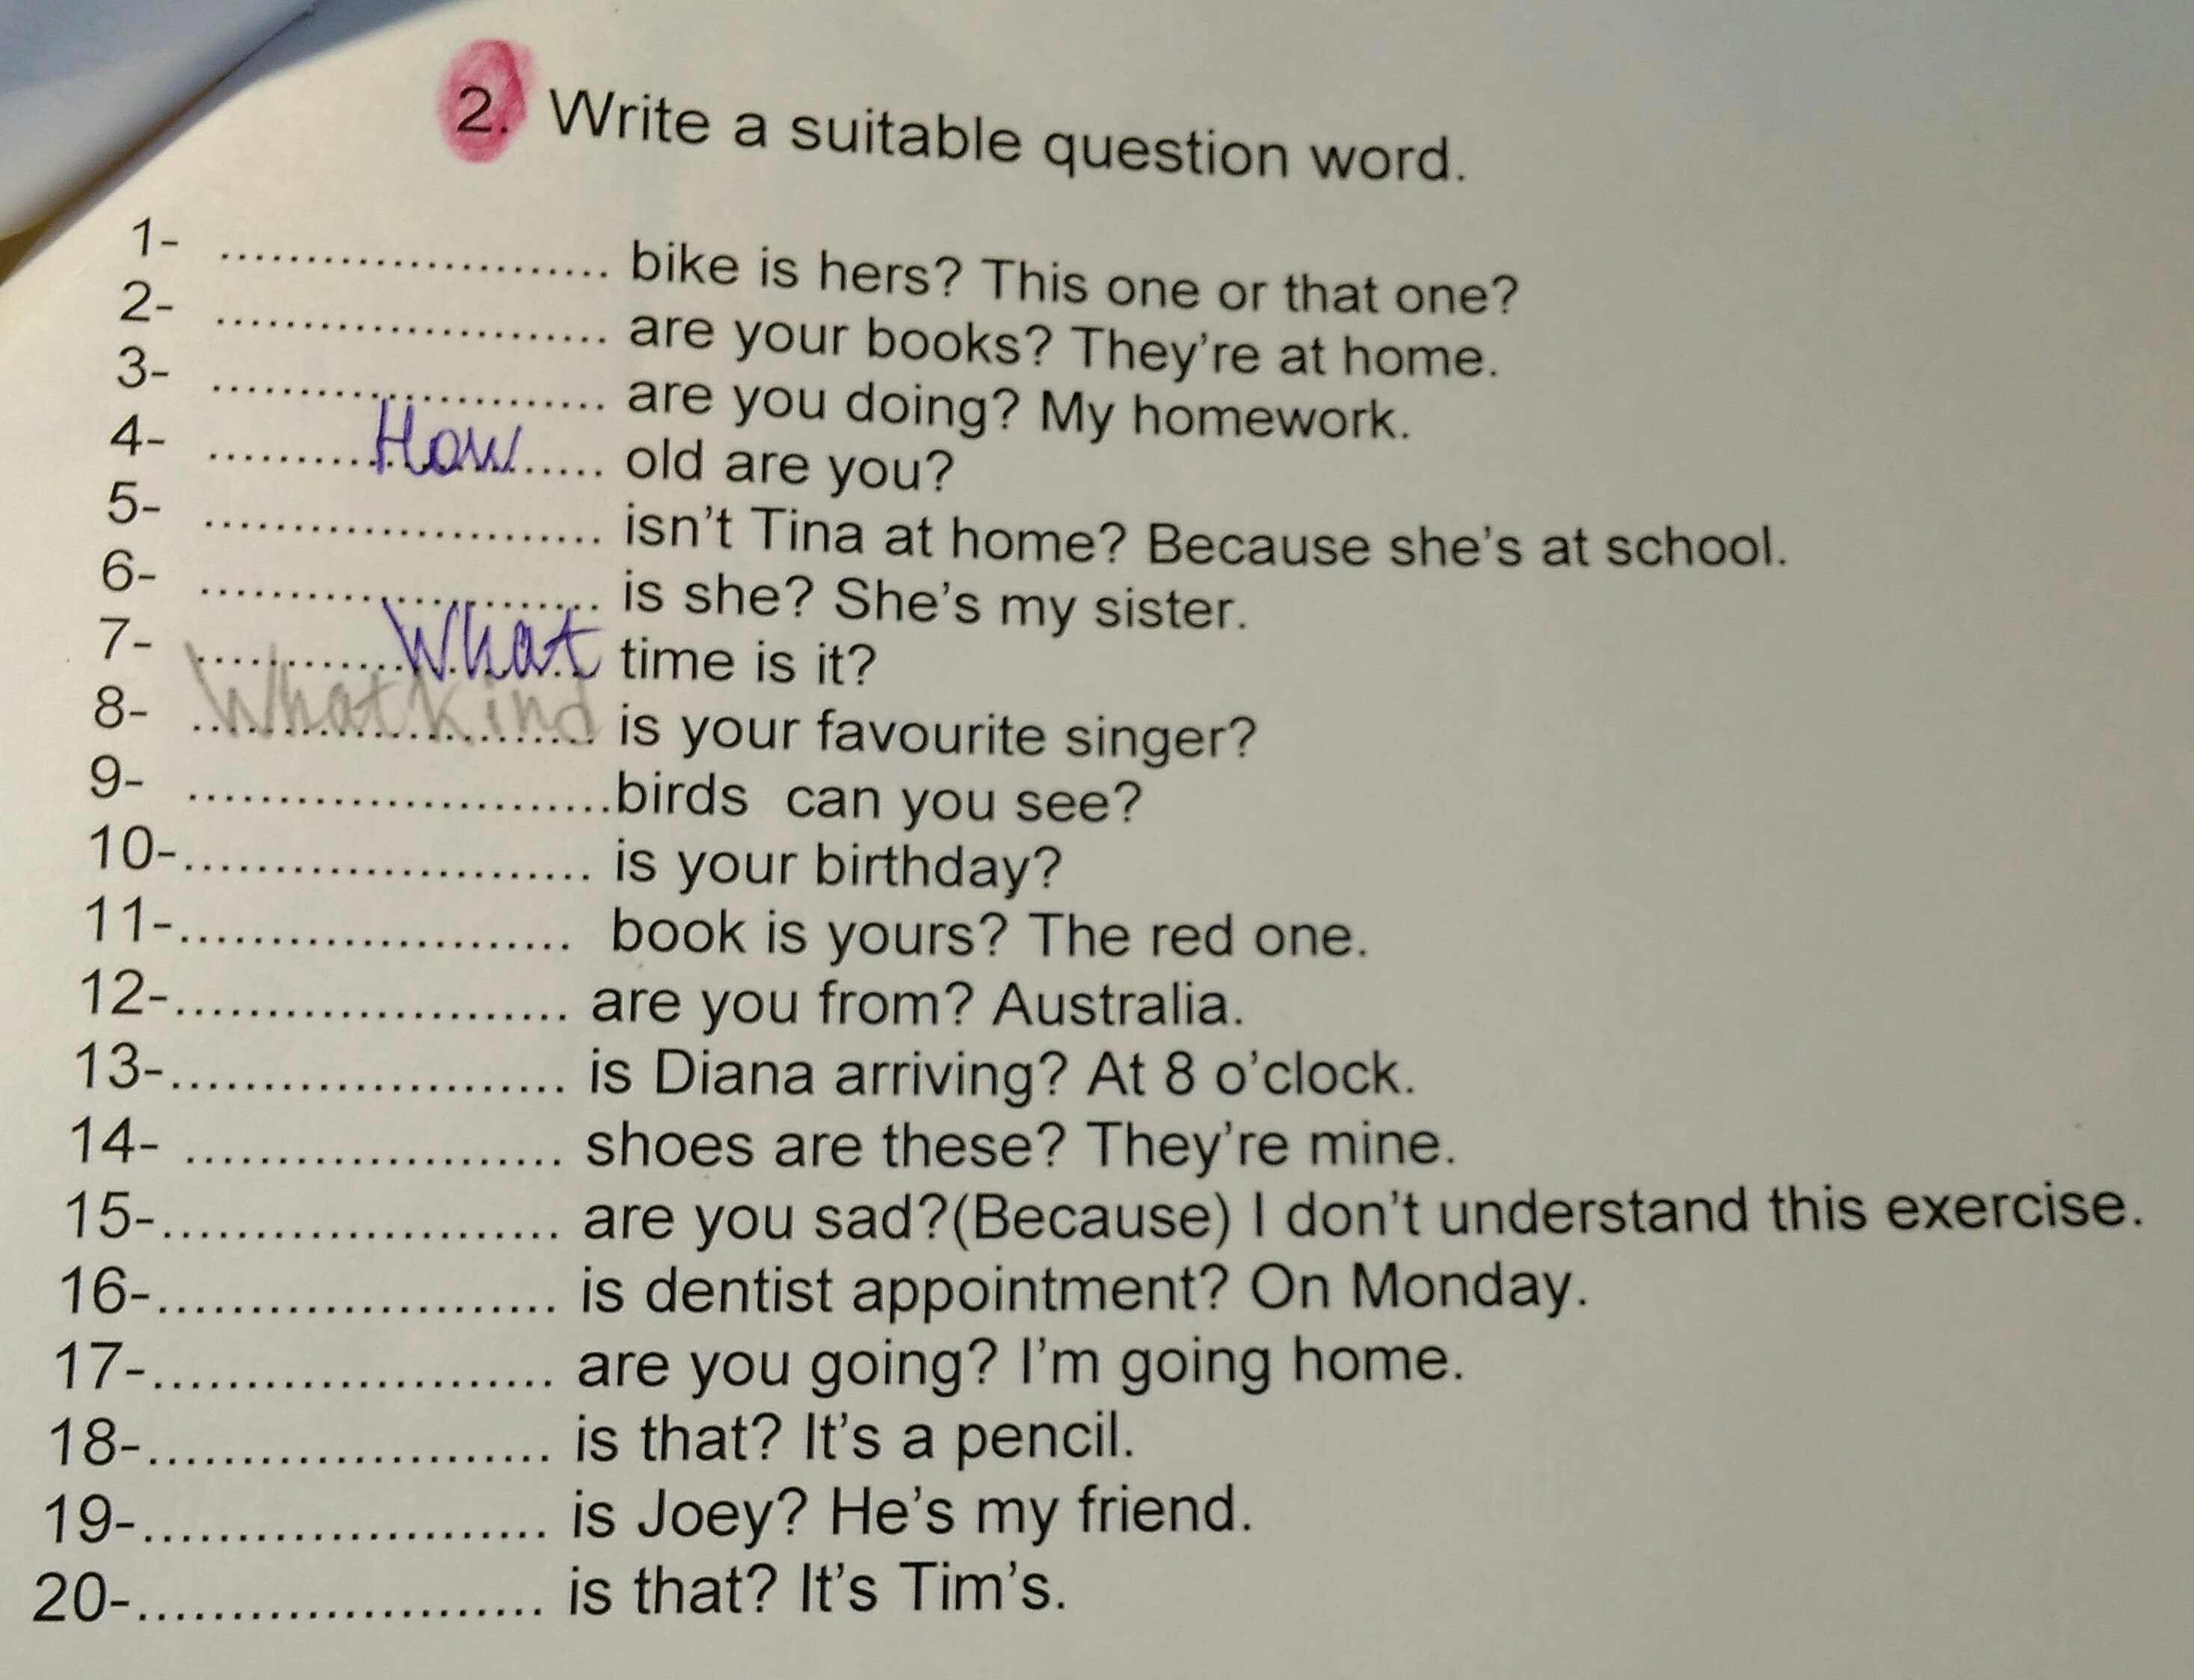 2. Write a suitable question word.
1- ........................ bike is hers? This one or that one?
2- ........................ are your books? They're at home.
3- ........................ are you doing? My homework.
4- ..........How..... old are you?
5- ........................ isn't Tina at home? Because she's at school.
6- ........................ is she? She's my sister.
7- ............What time is it?
8- What kind is your favourite singer?
9- ........................birds can you see?
10-........................ is your birthday?
11-........................ book is yours? The red one.
12-........................ are you from? Australia.
13-........................ is Diana arriving? At 8 o'clock.
14- ........................ shoes are these? They're mine.
15-........................ are you sad?(Because) I don't understand this exercise.
16-........................ is dentist appointment? On Monday.
17-........................ are you going? I'm going home.
18-........................ is that? It's a pencil.
19-........................ is Joey? He's my friend.
20-........................ is that? It's Tim's.